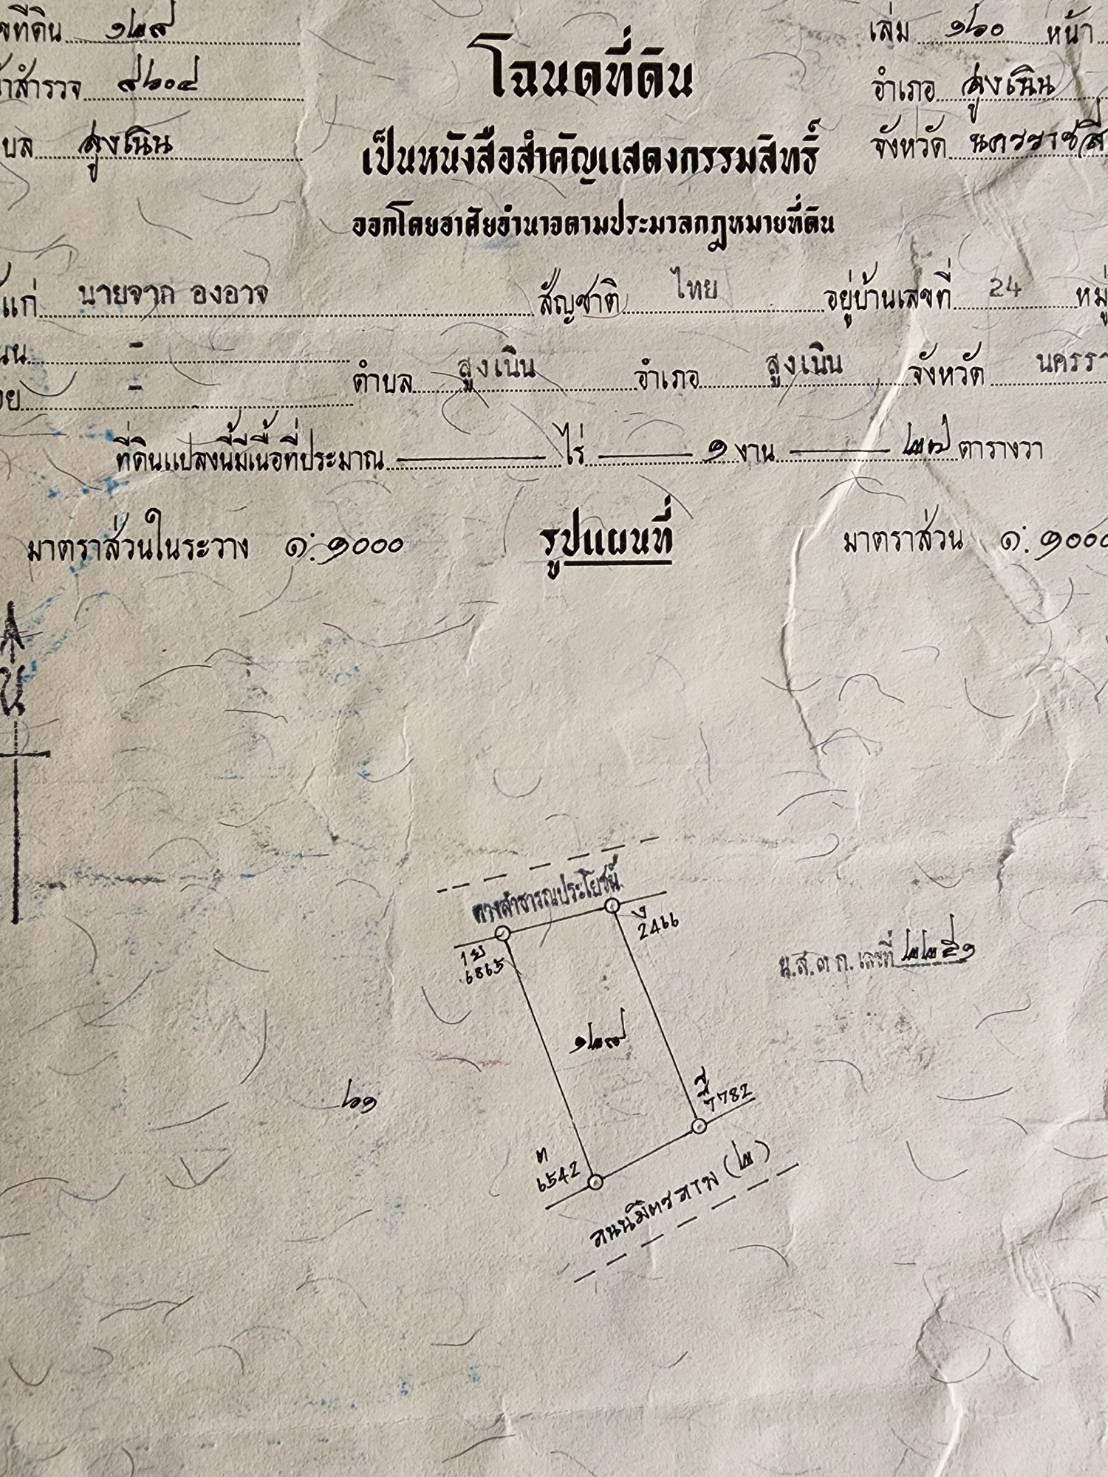 ที่ดิน ๑๒๙ โฉนดที่ดิน เล่ม ๑๖๐ หน้า
สำรวจ ๙๖๐๔ อำเภอ สูงเนิน
สูงเนิน เป็นหนังสือสำคัญแสดงกรรมสิทธิ์ จังหวัด นครราชสี
ออกโดยอาศัยอำนาจตามประมวลกฎหมายที่ดิน
แก่ นายจาก องอาจ สัญชาติ ไทย อยู่บ้านเลขที่ 24 หมู่
-
- ตำบล สูงเนิน อำเภอ สูงเนิน จังหวัด นครรา
ที่ดินแปลงนี้มีเนื้อที่ประมาณ — ไร่ — ๑ งาน — ๒๗ ตารางวา
มาตราส่วนในระวาง ๑:๑๐๐๐ รูปแผนที่ มาตราส่วน ๑:๑๐๐๐
น
ทางสาธารณประโยชน์
2466
6865
น.ส.๓ ก. เลขที่ ๒๒๕๑
๑๒๙
๖๑
7782
ต
6542
ถนนมิตรภาพ (๒)